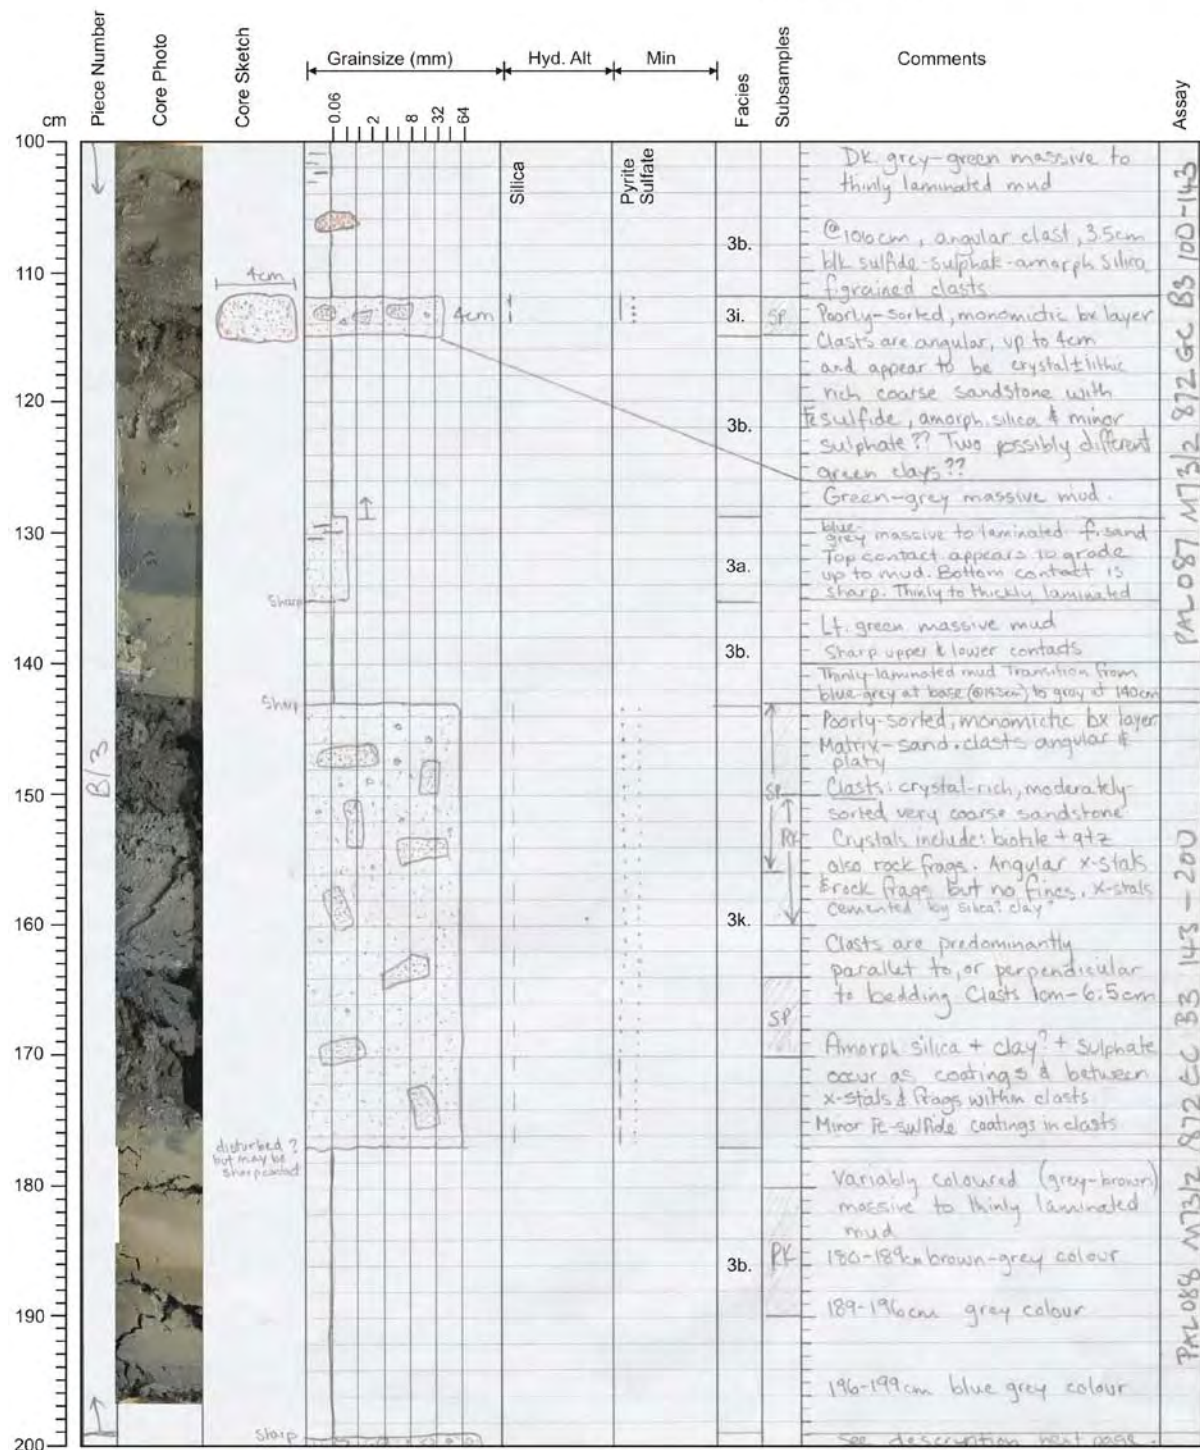 cm
Piece Number
Core Photo
Core Sketch
Grainsize (mm)
0.06
2
8
32
64
Hyd. Alt
Min
Facies
Subsamples
Comments
Assay
Silica
Pyrite
Sulfate
100
110
120
130
140
150
160
170
180
190
200
B/3
4cm
4cm
Sharp
Sharp
disturbed?
but may be
sharp contact
Sharp
3b.
3i.
3b.
3a.
3b.
3k.
3b.
SP
SP
RK
SP
RK
Dk. grey-green massive to
thinly laminated mud
@106cm, angular clast, 3.5cm
blk sulfide-sulphate-amorph silica
f.grained clasts
Poorly-sorted, monomictic bx layer
Clasts are angular, up to 4cm
and appear to be crystal±lithic
rich coarse sandstone with
Fe sulfide, amorph. silica & minor
sulphate?? Two possibly different
green clays??
Green-grey massive mud.
blue-
grey massive to laminated f. sand
Top contact appears to grade
up to mud. Bottom contact is
sharp. Thinly to thickly laminated
Lt. green massive mud
Sharp upper & lower contacts
Thinly-laminated mud Transition from
blue-grey at base (@143cm) to gray at 140cm
Poorly-sorted, monomictic bx layer
Matrix-sand. clasts angular &
platy
Clasts: crystal-rich, moderately-
sorted very coarse sandstone
Crystals include: biotite + qtz
also rock frags. Angular x-stals
& rock frags but no fines. x-stals
cemented by silica? clay?
Clasts are predominantly
parallel to, or perpendicular
to bedding Clasts 1cm-6.5cm
Amorph silica + clay? + sulphate
occur as coatings & between
x-stals & frags within clasts
Minor Fe-sulfide coatings in clasts
Variably coloured (grey-brown)
massive to thinly laminated
mud
180-189cm brown-grey colour
189-196cm grey colour
196-199cm blue grey colour
See description next page.
PAL087 M73/2 872 GC B3 100-143
PAL088 M73/2 872 GC B3 143-200